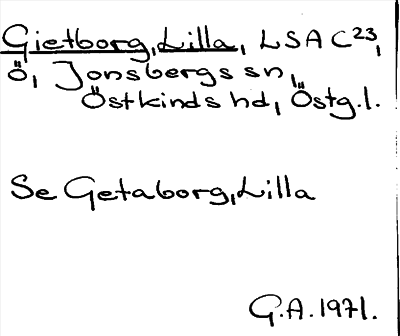 Gietborg, Lilla, LSA C²³,
Ö, Jonsbergs sn,
Östkinds hd, Östg.l.
Se Getaborg, Lilla
G.A. 1971.